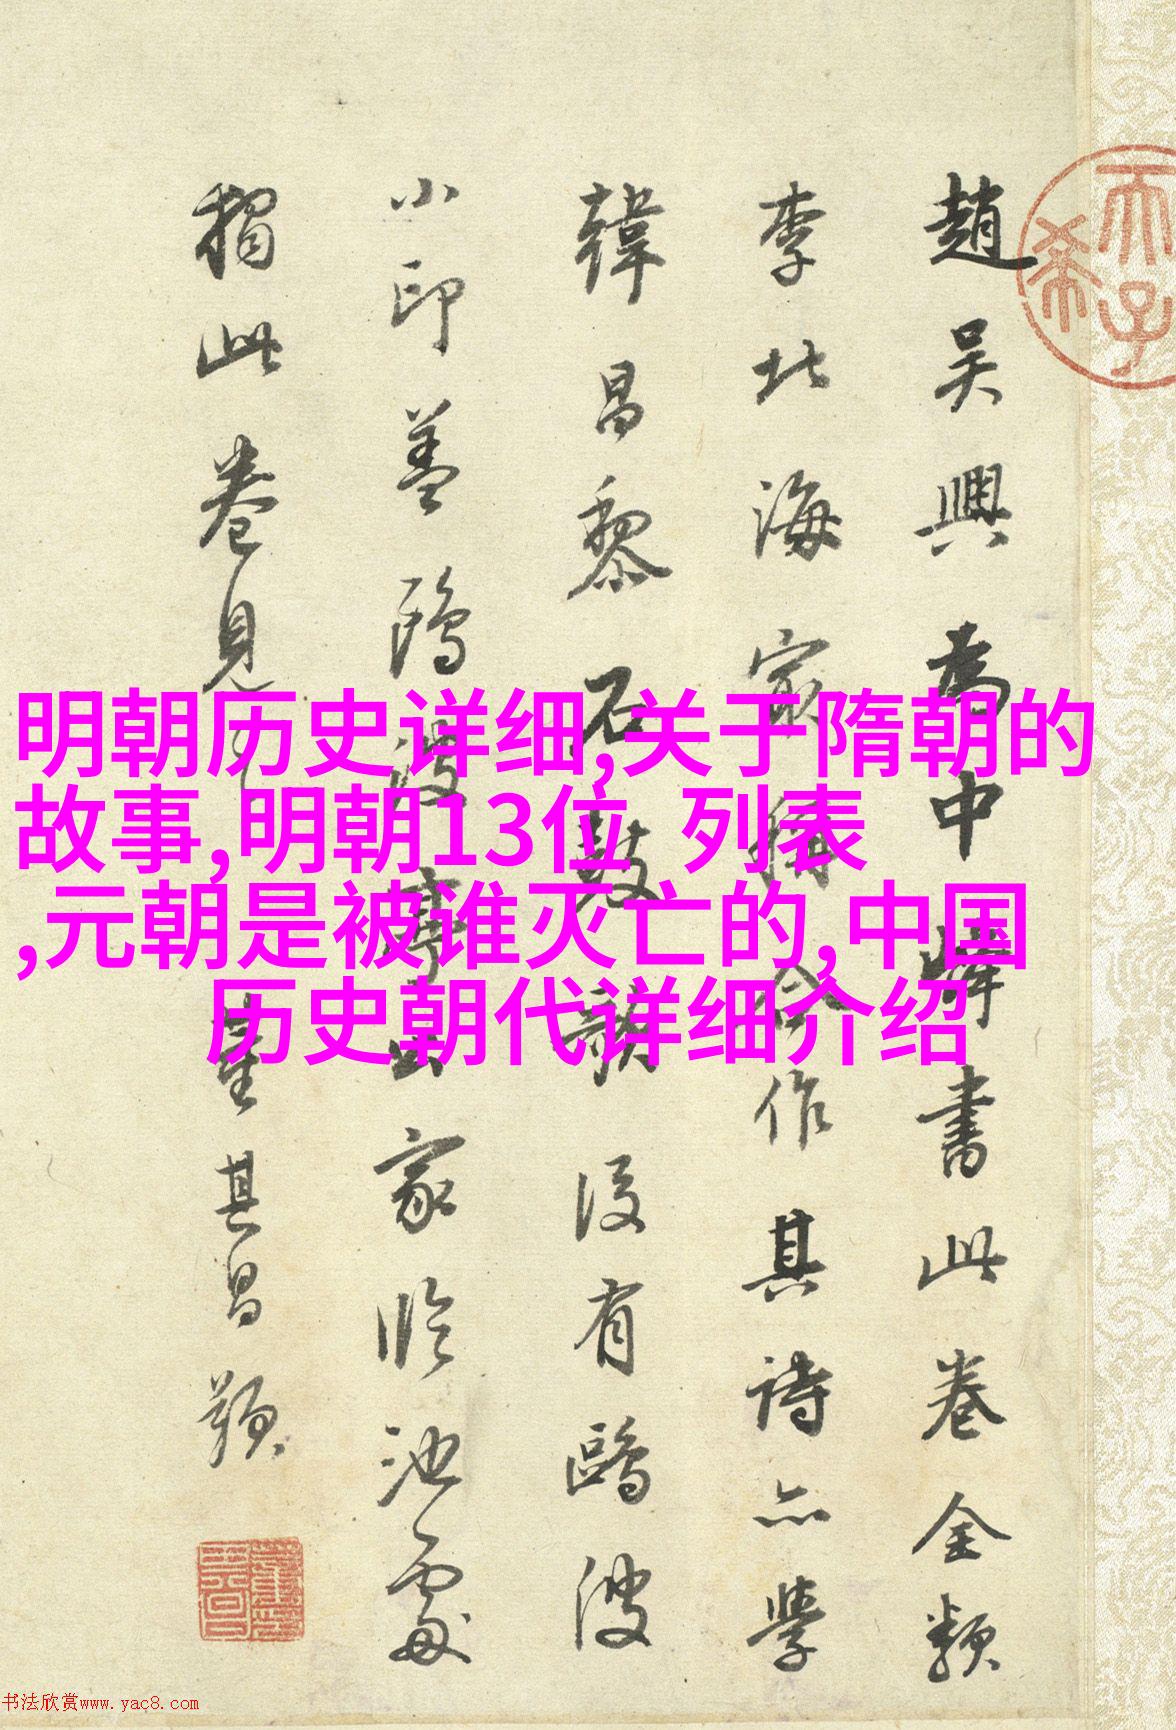 趙吳興為中峰書此卷全類
李北海家
作其詩亦學
韓昌黎石鼓歌後有鷗波
小印蓋鷗波亭
家臨池處
獨此卷見
董其昌題
天子
希
明朝历史详细,关于隋朝的
故事,明朝13位 列表
,元朝是被谁灭亡的,中国
历史朝代详细介绍
书法欣赏www.yac8.com